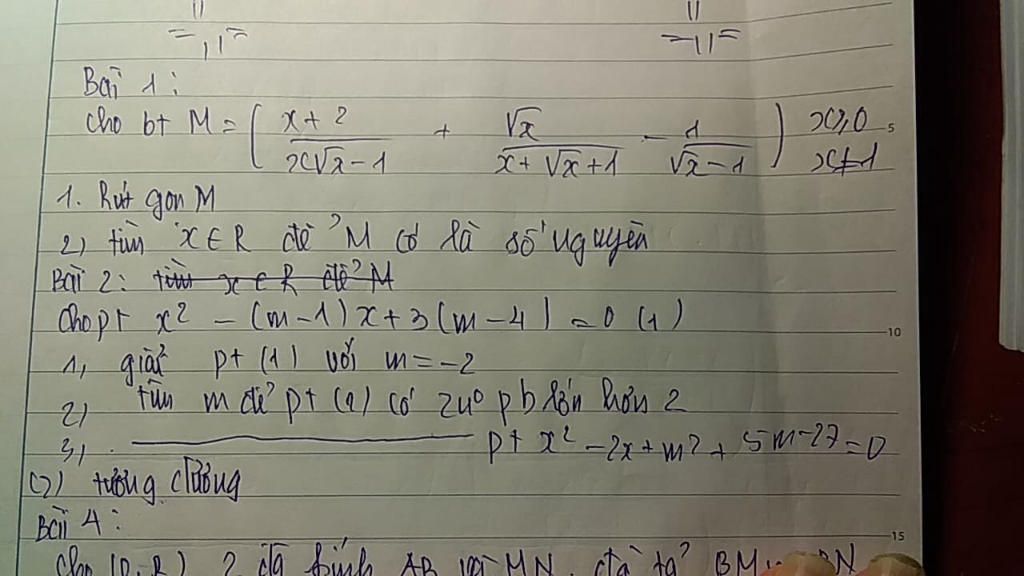 Bài 1:
Cho bt M = ( x + 2 / x√x - 1 + √x / x + √x + 1 - 1 / √x - 1 ) x ≥ 0 x ≠ 1
1. Rút gọn M
2) tìm x ∈ R để M có là số nguyên
Bài 2: tìm x ∈ R để M
Cho pt x² - (m-1)x + 3(m-4) = 0 (1)
1, giải pt (1) với m = -2
2) tìm m để pt (1) có 2 no pb lớn hơn 2
3) pt x² - 2x + m² + 5m - 27 = 0
(2) tương đương
Bài 4:
Cho (O; R) 2 đg kính AB và MN.
5
10
15